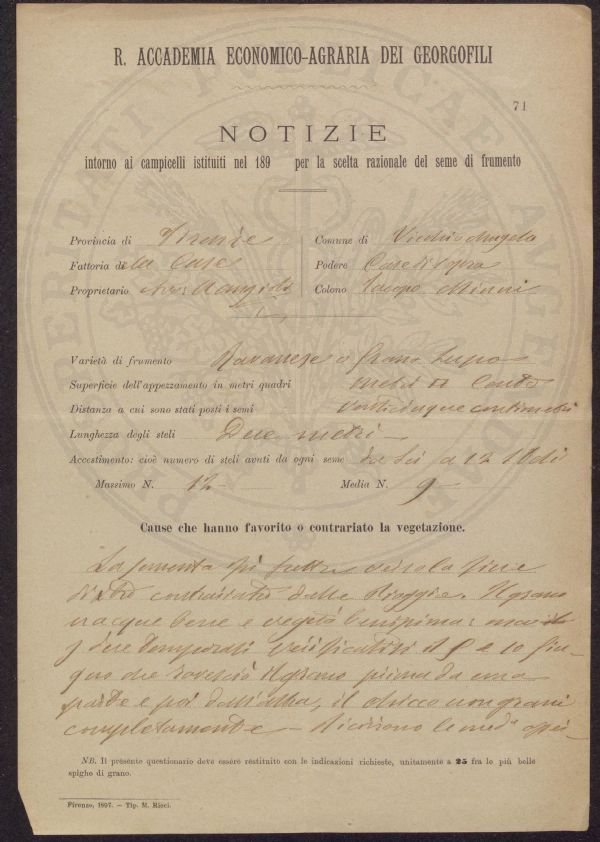 R. ACCADEMIA ECONOMICO-AGRARIA DEI GEORGOFILI
71
NOTIZIE
intorno ai campicelli istituiti nel 189 per la scelta razionale del seme di frumento
Provincia di Firenze
Comune di Vicchio
Fattoria di le Case
Podere Case di sopra
Proprietario
Colono Jacopo
Varietà di frumento o grano Lupo
Superficie dell'appezzamento in metri quadri metri Cento
Distanza a cui sono stati posti i semi venticinque centimetri
Lunghezza degli steli Due metri
Accestimento: cioè numero di steli avuti da ogni seme da sei a 12
Massimo N. 12 Media N. 9
Cause che hanno favorito o contrariato la vegetazione.
La sementa si fece verso la fine
di contrariata dalle Pioggie. Il grano
nacque bene e vegetò benissimo: ma
verificatisi il 9 e 10 Giu-
gno che rovesciò il grano prima da una
parte e poi dall'altra, il chicco non granì
completamente
NB. Il presente questionario deve essere restituito con le indicazioni richieste, unitamente a 25 fra le più belle
spighe di grano.
Firenze, 1897. — Tip. M. Ricci.